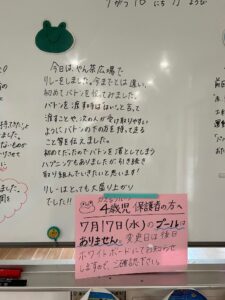 今日は、やん茶広場で
リレーをしました。今までとは違い、
初めてバトンを使ってみました。
バトンを渡す時は「はい」と言って
渡すことや、次の人が受け取りやすい
ように、バトンの下の方を持って走る
こと等を伝えました。
初めてだったのでバトンを落としてしまう
ハプニングもありましたが、引き続き
取り組んでいきたいと思います!
リレーはとても大盛り上がり
でした!!
かえるグループ
4歳児 保護者の方へ
7月17日(水)のプールは
ありません。変更日は後日
ホワイトボードにてお知らせ
しますので、ご確認下さい。